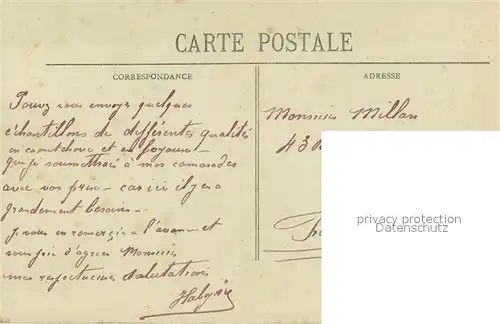 CARTE POSTALE
CORRESPONDANCE
Pouvez vous envoyer quelques
échantillons de différentes qualités
en caoutchouc et en
que je soumettrai à mes camarades
avec vos prix — car ici il y en a
grandement besoin —
Je vous en remercie à l'avance et
vous prie d'agréer Monsieur
mes respectueuses salutations
ADRESSE
Monsieur Millan
43
privacy protection
VINTAGE-POSTCARD.COM